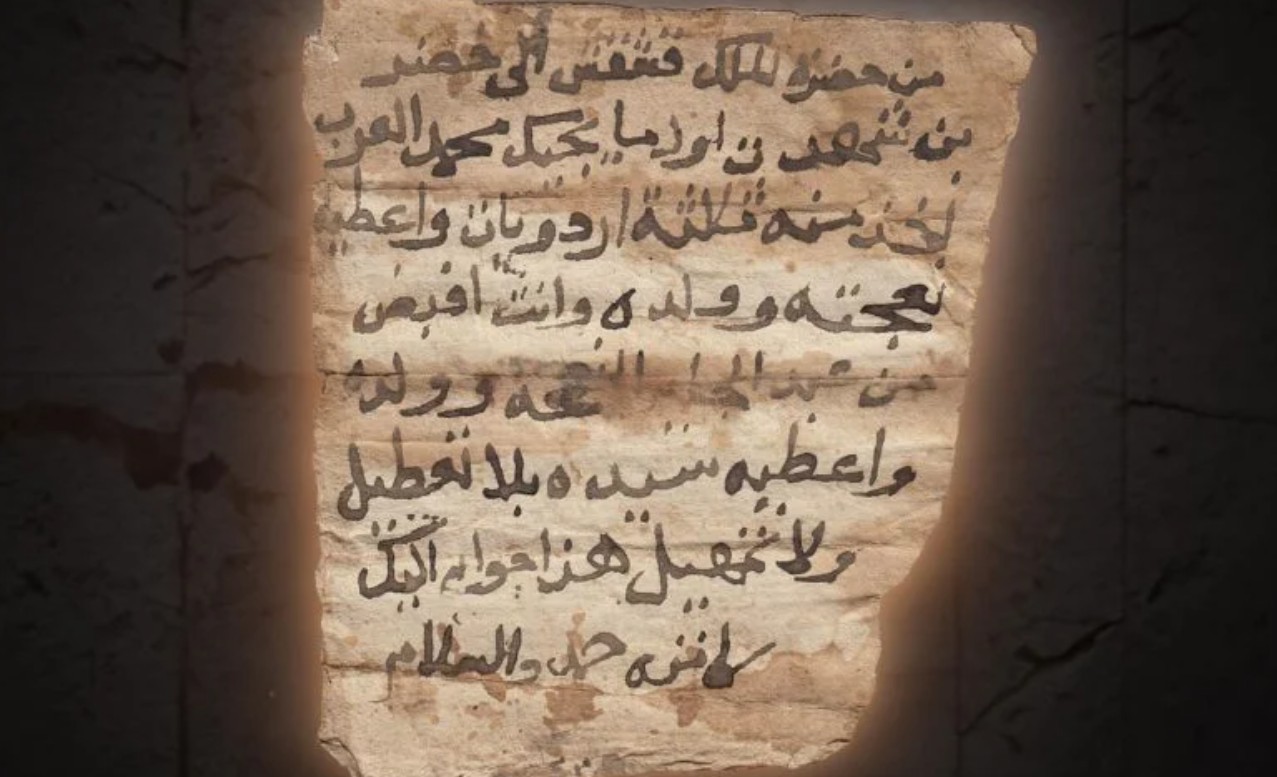 من حضره الملك قشقش الى خضر
بن شهد ن اود ما يجيك محمد العرب
تخذ منه ثلاثة اردويات واعطيه
نعجته وولده وانت اقبض
من عبد الجابر النعجه وولده
واعطيه سيده بلا تعطيل
ولا تمهيل هذا جوابي اليك
كاتبه حمد والسلام